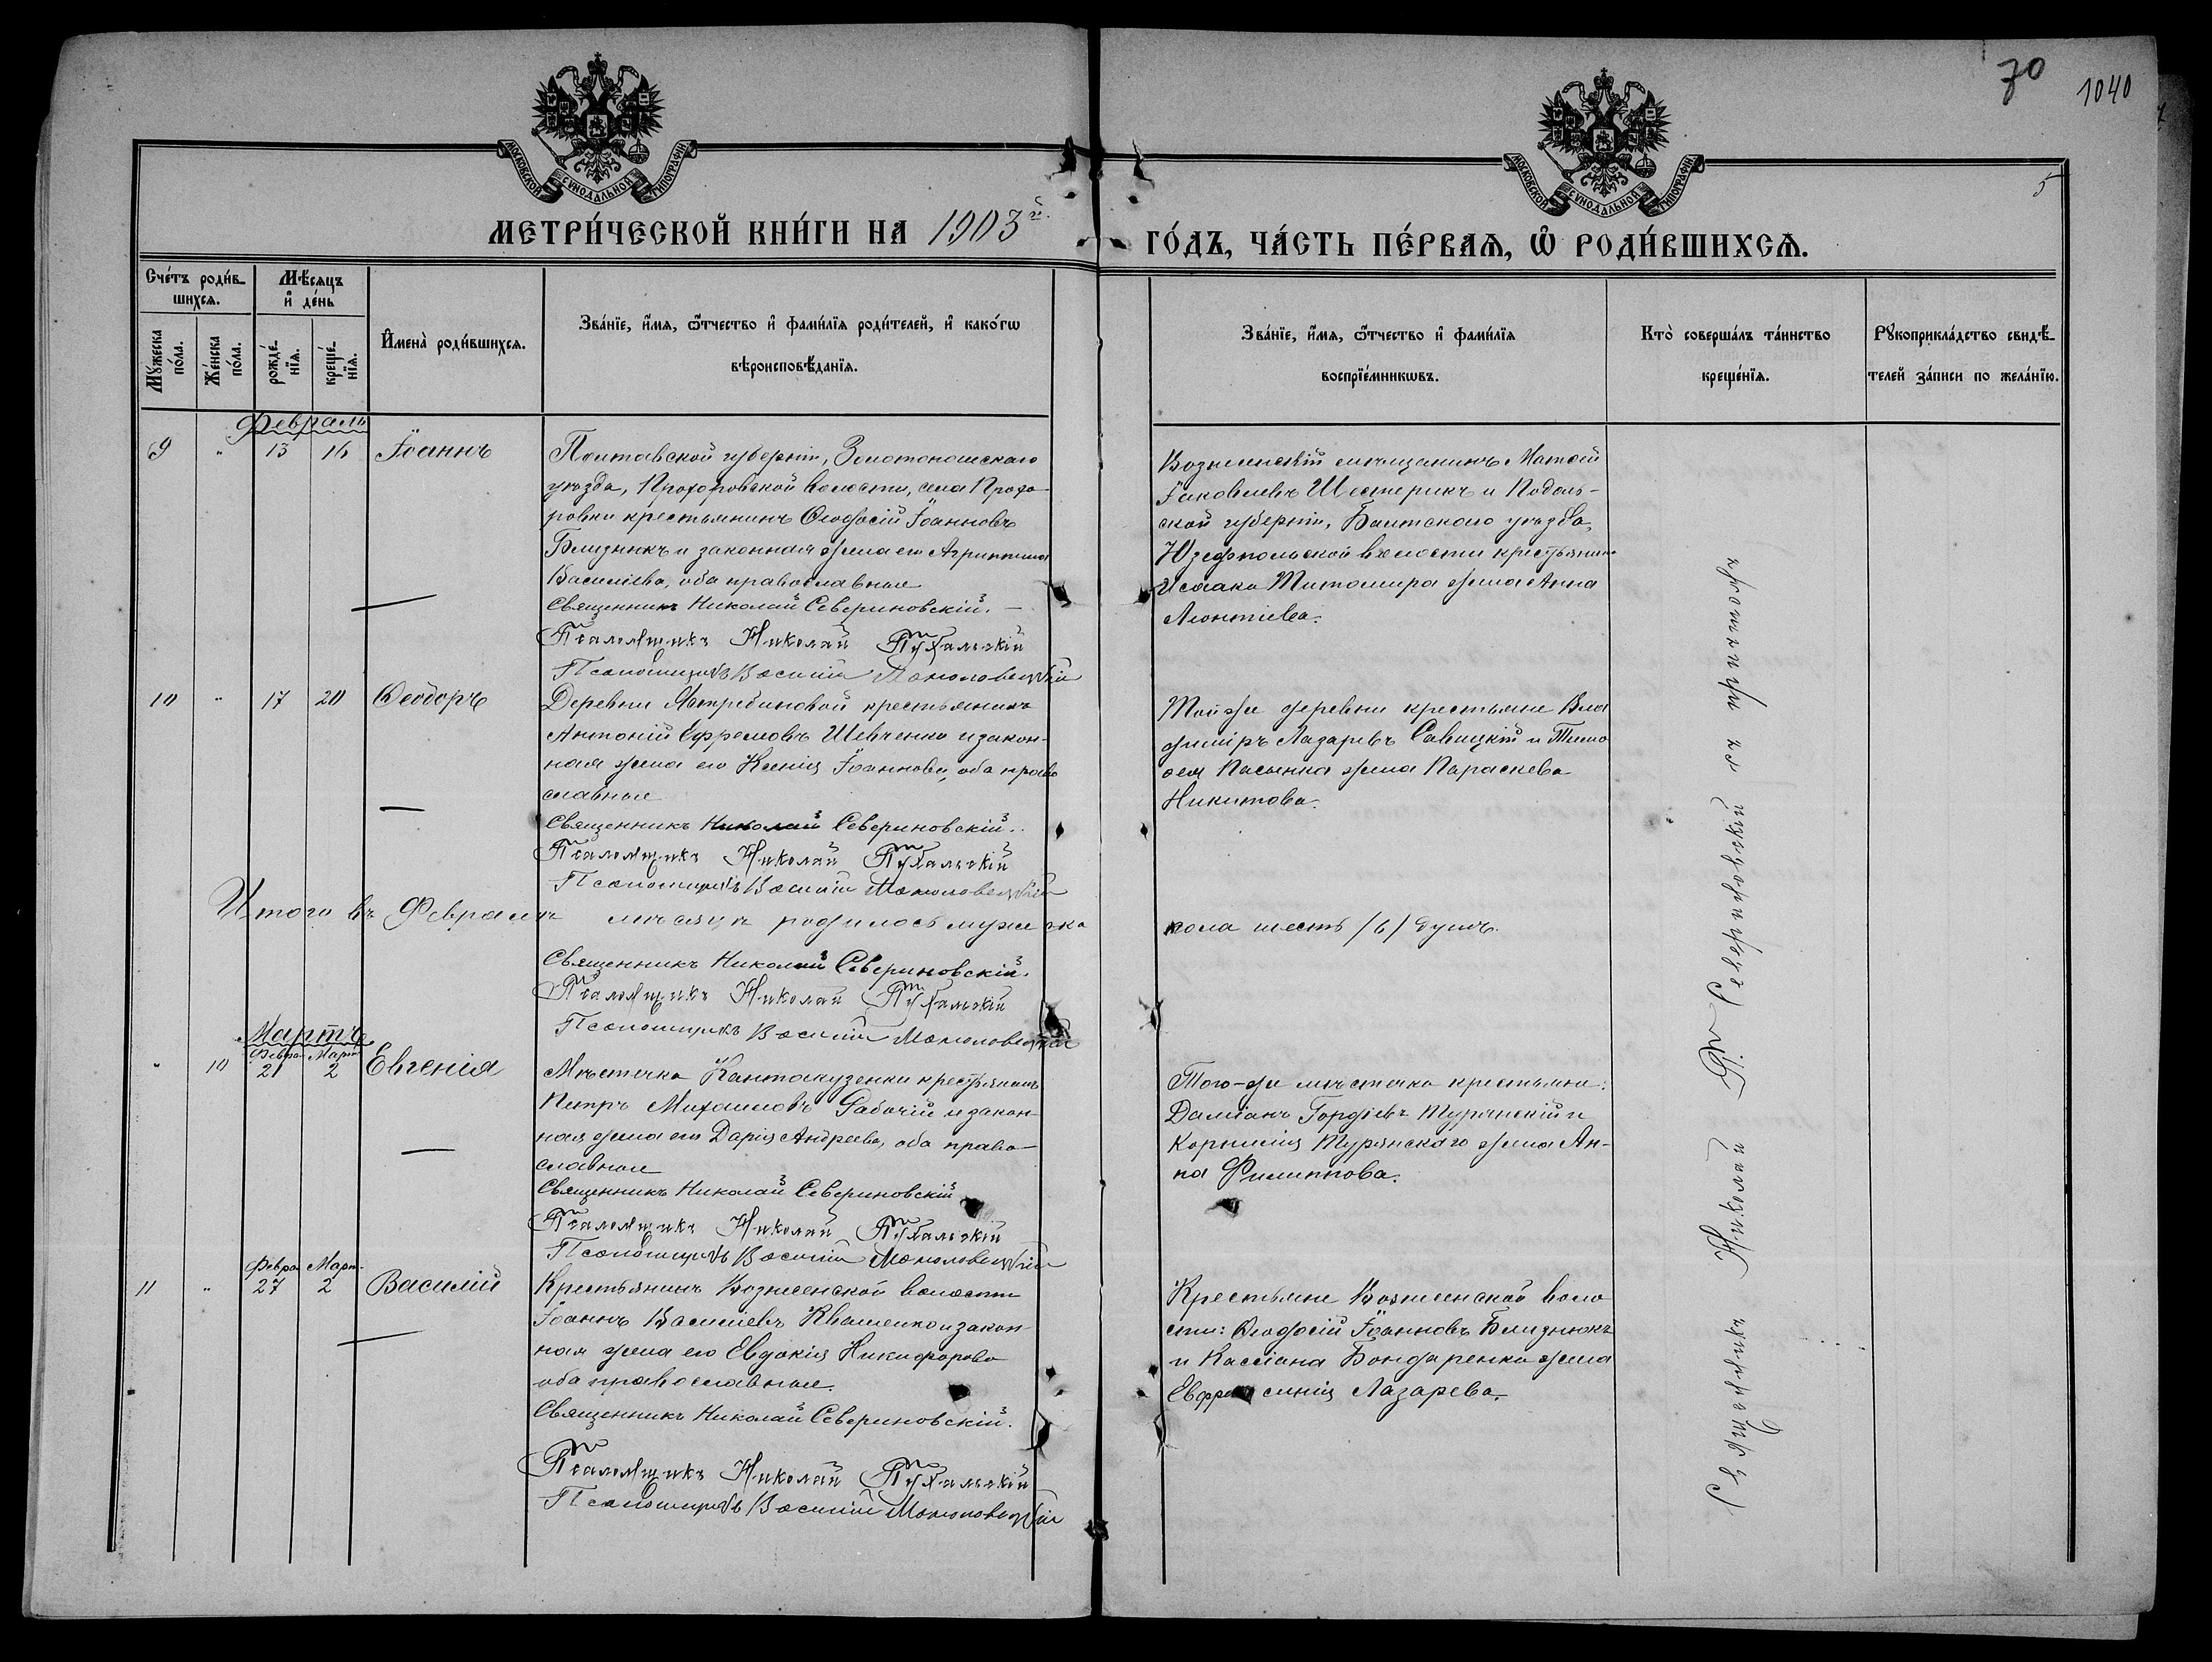 70
1040
5
МОСКОВСКОЙ СѴНОДАЛЬНОЙ ТИПОГРАФІИ
МОСКОВСКОЙ СѴНОДАЛЬНОЙ ТИПОГРАФІИ
МЕТРИ́ЧЕСКОЙ КНИ́ГИ НА 1903й
ГО́ДЪ, ЧА́СТЬ ПЕ́РВАѦ, Ѡ҆ РОДИ́ВШИХСѦ.
Сче́тъ роди́в-
шихсѧ.
Мꙋ́жеска по́ла.
Же́нска по́ла.
Мѣ́сѧцъ
и҆ де́нь
рожде́-нїѧ.
креще́-нїѧ.
И҆мена̀ роди́вшихсѧ.
Зва́нїе, и҆́мѧ, ѻ҆́тчество и҆ фами́лїѧ роди́телей, и҆ како́гѡ
вѣроисповѣ́данїѧ.
Зва́нїе, и҆́мѧ, ѻ҆́тчество и҆ фами́лїѧ
воспрїе́мникѡвъ.
Кто̀ соверша́лъ та́инство
креще́нїѧ.
Рꙋкоприкла́дство свидѣ́-
телей за́писи по жела́нїю.
Февраль
9 " 13 16 Іоаннъ
Полтавской губерніи, Золотоношскаго
уѣзда, Прохоровской волости, села Прохо-
ровки крестьянинъ Ѳеодосій Іоанновъ
Близнюкъ и законная жена его Агриппина
Василіева, оба православные
Священникъ Николай Севериновскій.
Псаломщикъ Николай
Псаломщикъ Василій
Вознесенскій мѣщанинъ Матѳій
Іаковлевъ Шестерикъ и Подоль-
ской губерніи, Балтскаго уѣзда,
Юзефпольской волости крестьянина
Исаака Житомира жена Анна
Леонтіева.
10 " 17 20 Ѳеодоръ
Деревни Ястребиновой крестьянинъ
Антоній Ефремовъ Шевченко и закон-
ная жена его Ксенія Іоаннова, оба право
славные
Священникъ Николай Севериновскій.
Псаломщикъ Николай
Псаломщикъ Василій
Той же деревни крестьяне Вла
диміръ Лазаревъ Савицкій и Тимо
ѳея Пасынка жена Параскева
Никитова.
Итого въ Февралѣ мѣсяцѣ родилось мужеска
пола шесть /6/ душъ.
Священникъ Николай Севериновскій.
Псаломщикъ Николай
Псаломщикъ Василій
Мартъ
Февра Март
" 10 21 2 Евгенія
Мѣстечка Кантакузенки крестьянинъ
Петръ Михаиловъ Рабочій и закон-
ная жена его Дарія Андреева, оба право-
славные
Священникъ Николай Севериновскій
Псаломщикъ Николай
Псаломщикъ Василій
Того-же мѣстечка крестьяне:
Даміанъ Гордіевъ Турянскій и
Корнилія Турянскаго жена Ан-
на Филиппова.
Февра Март
11 " 27 2 Василій
Крестьянинъ Вознесенской волости
Іоаннъ Василіевъ Квашенко и закон-
ная жена его Евдокія Никифорова
оба православные.
Священникъ Николай Севериновскій.
Псаломщикъ Николай
Псаломщикъ Василій
Крестьяне Вознесенской воло
сти: Ѳеодосій Іоанновъ Близнюкъ
и Кассіана Бондаренка жена
Евфросинія Лазарева.
Священникъ Николай Севериновскій съ причтомъ